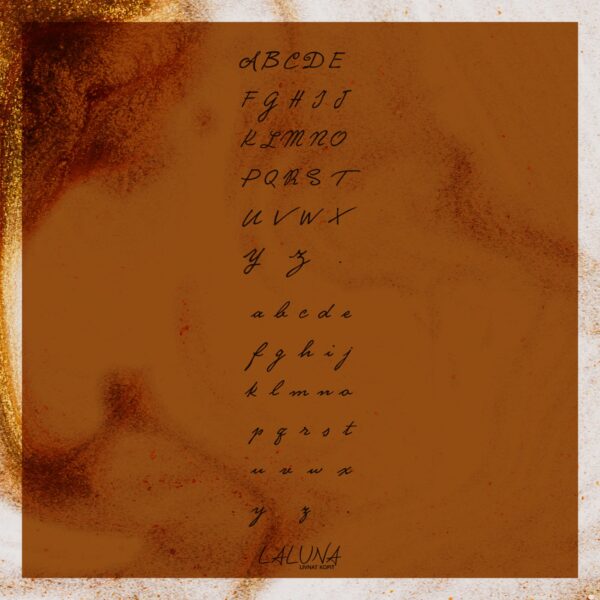 A B C D E
F G H I J
K L M N O
P Q R S T
U V W X
Y Z .
a b c d e
f g h i j
k l m n o
p q r s t
u v w x
y z .
LALUNA
LIVNAT KOFIT